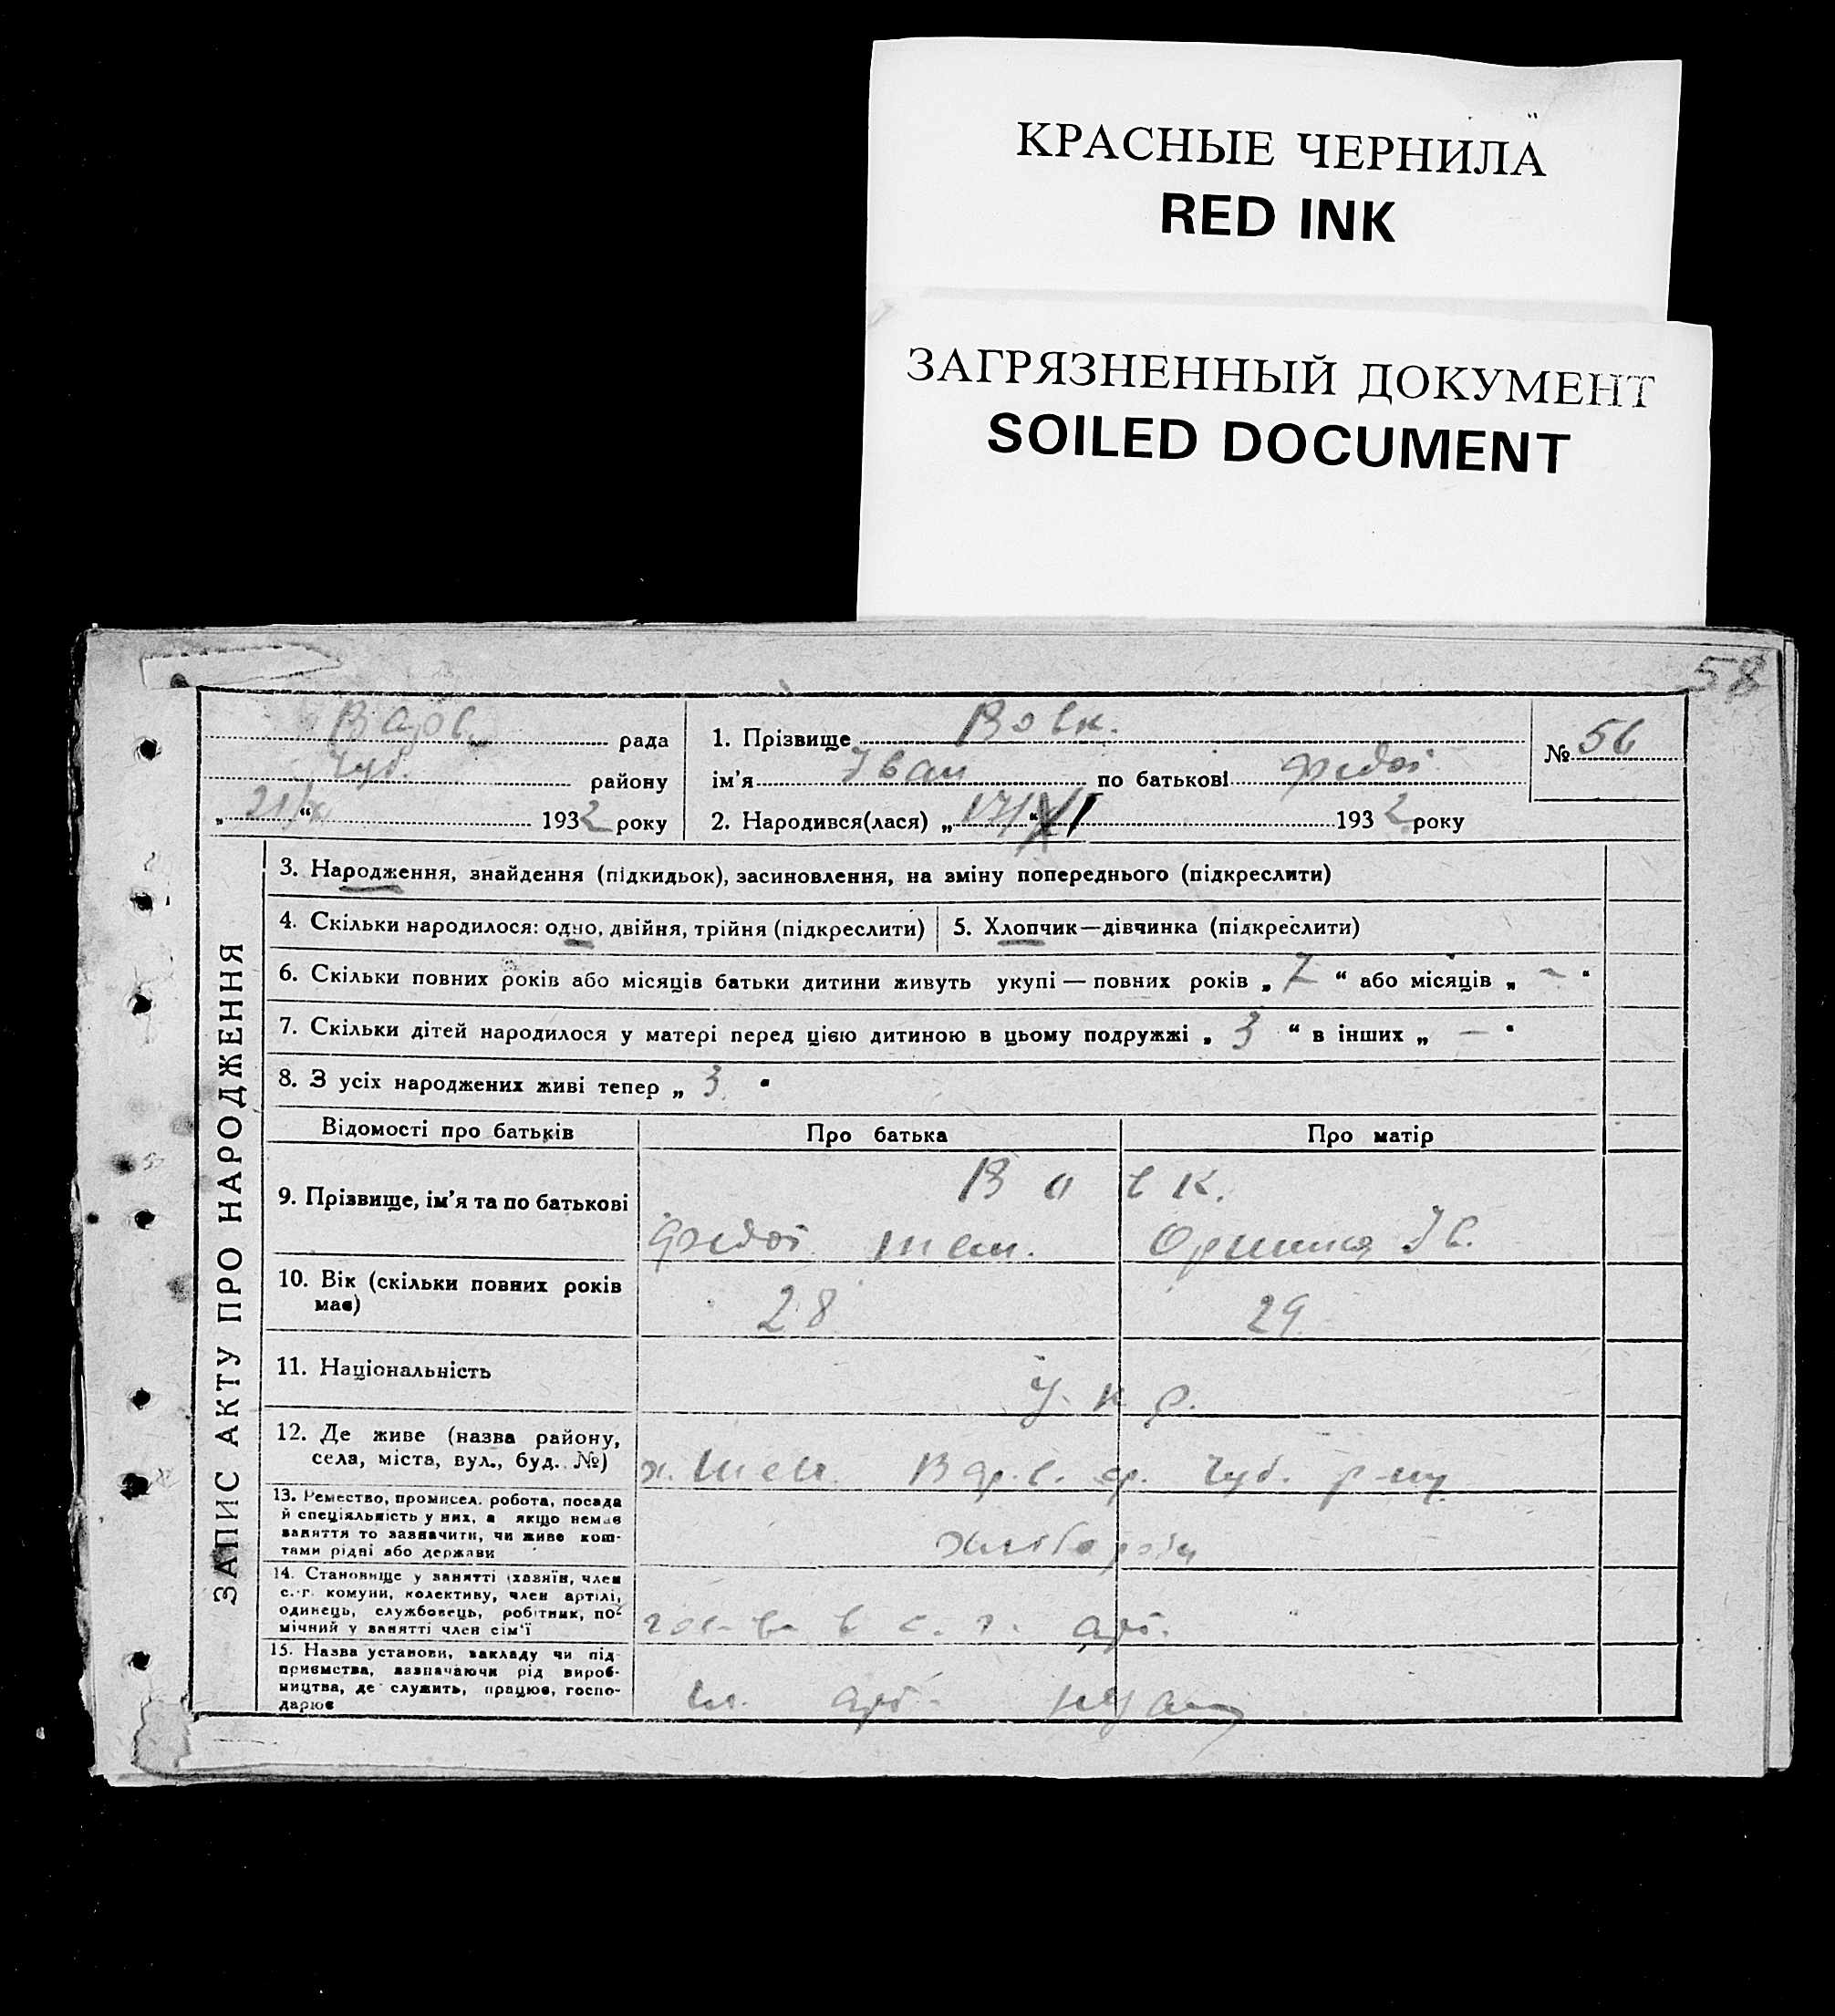 КРАСНЫЕ ЧЕРНИЛА
RED INK
ЗАГРЯЗНЕННЫЙ ДОКУМЕНТ
SOILED DOCUMENT
58
ЗАПИС АКТУ ПРО НАРОДЖЕННЯ
рада
Чуб. району
„21/X“ 1932 року
1. Прізвище Вовк.
ім'я Іван по батькові Федос
№ 56
2. Народився(лася) „17/XI“ 1932 року
3. Народження, знайдення (підкидьок), засиновлення, на зміну попереднього (підкреслити)
4. Скільки народилося: одно, двійня, трійня (підкреслити)
5. Хлопчик—дівчинка (підкреслити)
6. Скільки повних років або місяців батьки дитини живуть укупі — повних років „ 7 “ або місяців „ – “
7. Скільки дітей народилося у матері перед цією дитиною в цьому подружжі „ 3 “ в інших „ — “
8. З усіх народжених живі тепер „ 3 “
Відомості про батьків Про батька Про матір
9. Прізвище, ім'я та по батькові
Вовк.
Федос Ів.
10. Вік (скільки повних років має) 28 29
11. Національність Укр.
12. Де живе (назва району,
села, міста, вул., буд. №) х. Чуб. р-ну
13. Ремество, промисел. робота, посада
й спеціяльність у них, а якщо немає
заняття то зазначити, чи живе кош-
тами рідні або держави
Хлібороби
14. Становище у занятті (хазяїн, член
с.-г. комуни, колективу, член артілі,
одинець, службовець, робітник, по-
мічний у занятті член сім'ї
в с. г. арт.
15. Назва установи, закладу чи під-
приємства, зазначаючи рід вироб-
ництва, де служить, працює, госпо-
дарює
арт.